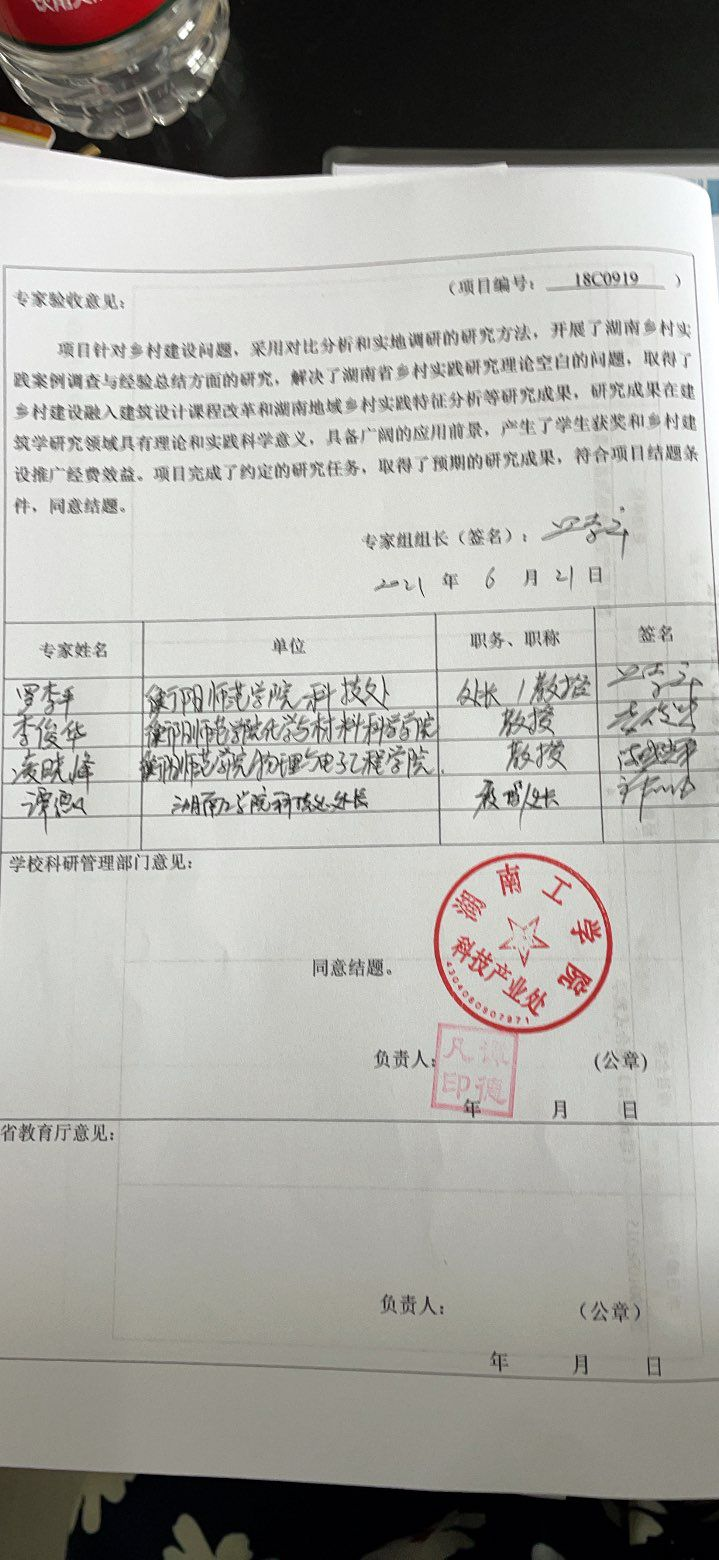 专家验收意见：
（项目编号： 18C0919 ）
项目针对乡村建设问题，采用对比分析和实地调研的研究方法，开展了湖南乡村实
践案例调查与经验总结方面的研究，解决了湖南省乡村实践研究理论空白的问题，取得了
乡村建设融入建筑设计课程改革和湖南地域乡村实践特征分析等研究成果，研究成果在建
筑学研究领域具有理论和实践科学意义，具备广阔的应用前景，产生了学生获奖和乡村建
设推广经费效益。项目完成了约定的研究任务，取得了预期的研究成果，符合项目结题条
件，同意结题。
专家组组长（签名）：
2021 年 6 月 21 日
专家姓名 单位 职务、职称 签名
罗李平 衡阳师范学院科技处 处长/教授
李俊华 衡阳师范学院化学与材料科学学院 教授
凌晓峰 衡阳师范学院物理与电子工程学院 教授
谭德凡 湖南工学院科技处处长 教授/处长
学校科研管理部门意见：
湖南工学院
科技产业处
4304080807971
同意结题。
负责人： （公章）
谭德凡印
年 月 日
省教育厅意见：
负责人： （公章）
年 月 日